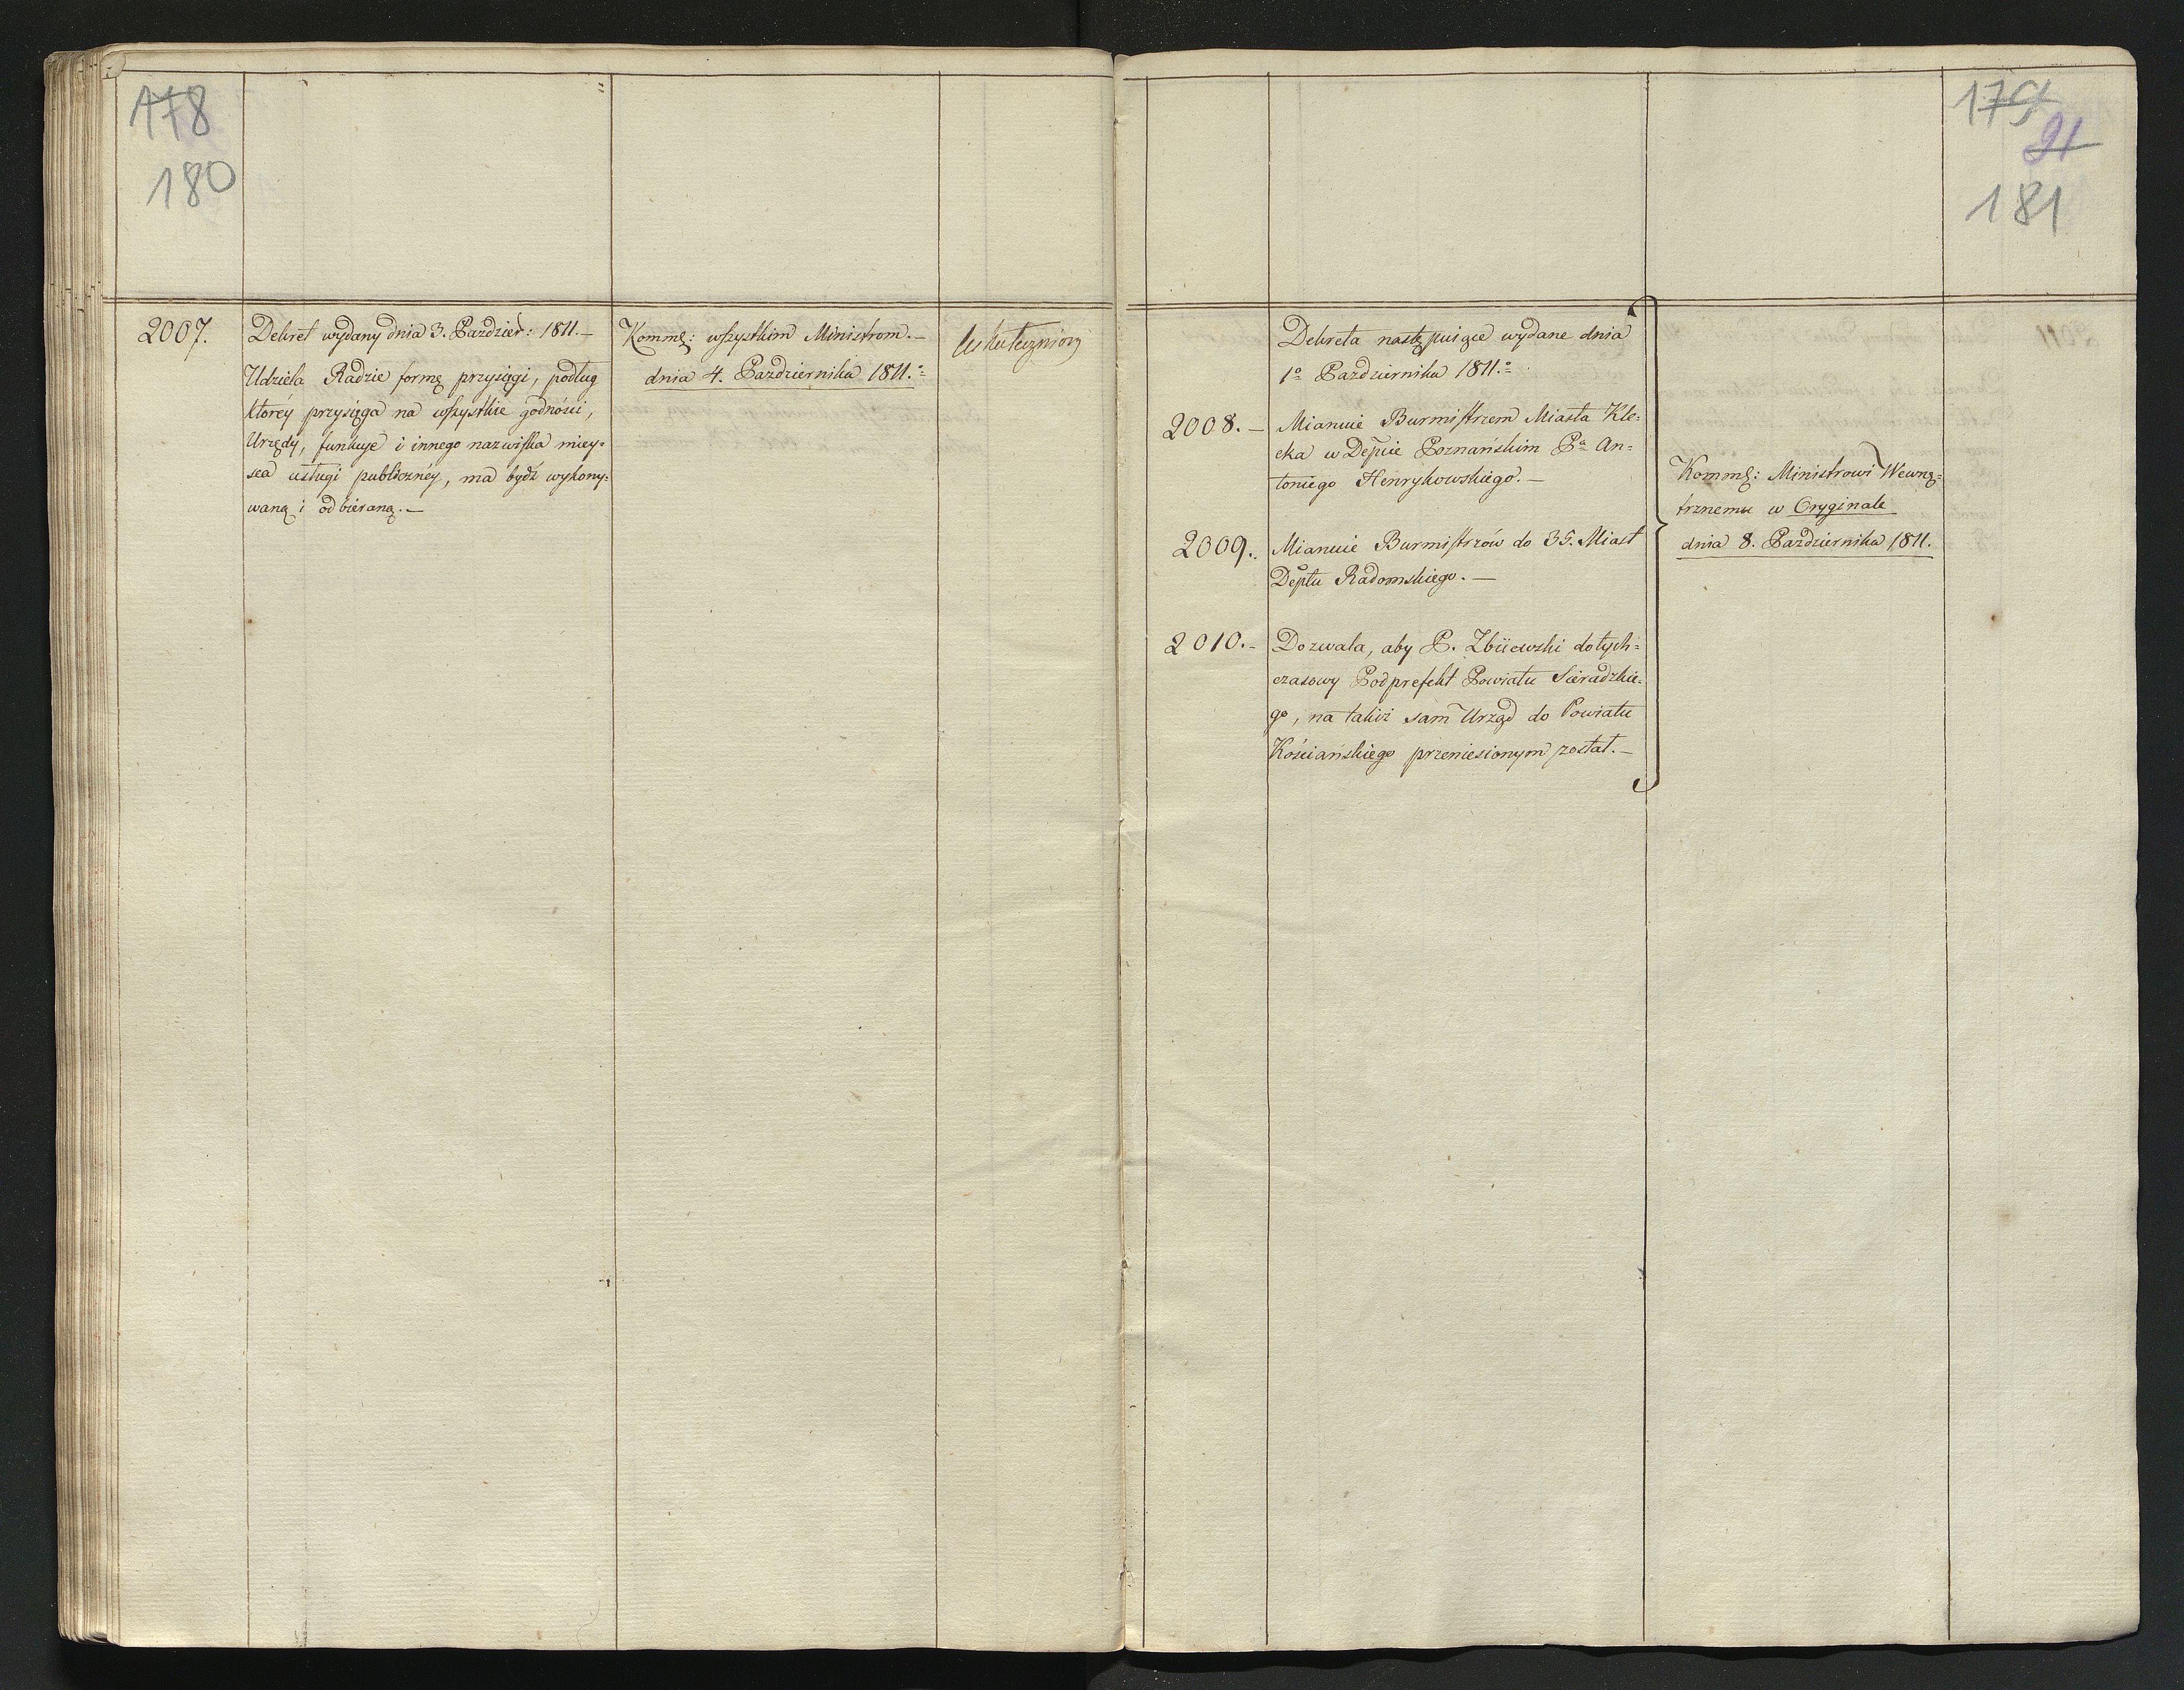 178
180
2007.
Dekret wydany dnia 3. Paździer: 1811.—
Udziela Radzie formę przysięgi, podług
któréy przysięga na wszystkie godności,
Urzędy, funkcye i innego nazwiska miey-
sca usługi publicznéy, ma bydź wykony-
waną i odbieraną.—
Kommę: wszystkim Ministrom.—
dnia 4. Października 1811.
Uskuteczniony
179
91
181
Dekreta następuiące wydane dnia
1º Października 1811.
2008.—
Mianuie Burmistrzem Miasta Kle-
cka w Depcie Poznańskim Pª An-
toniego Henrykowskiego.—
2009.
Mianuie Burmistrzów do 35. Miast
Deptu Radomskiego.—
2010.-
Dozwala, aby P. Zbiiewski dotych-
czasowy Podprefekt Powiatu Sieradzkie-
go, na takiż sam Urząd do Powiatu
Kościańskiego przeniesionym został.—
Kommę: Ministrowi Wewnę-
trznemu w Oryginale
dnia 8. Października 1811.